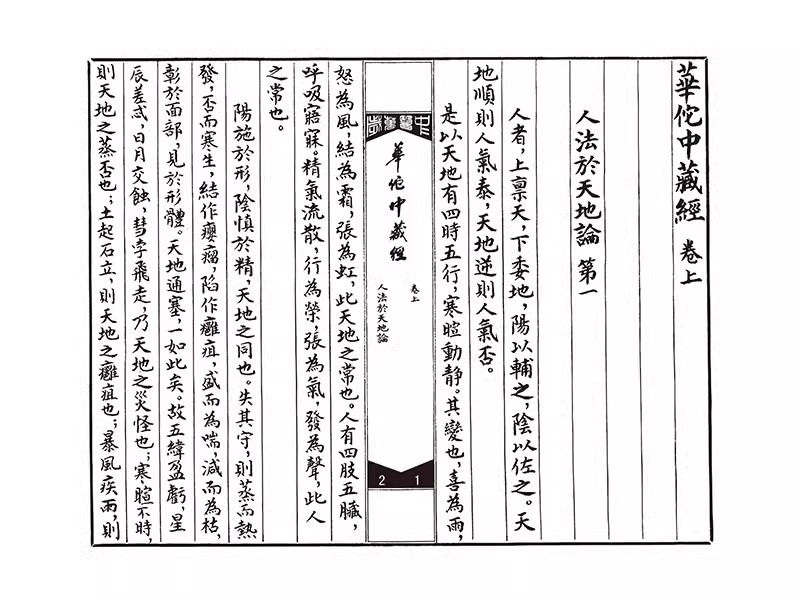 華佗中藏經 卷上
人法於天地論 第一
人者，上禀天，下委地，陽以輔之，陰以佐之。天
地順則人氣泰，天地逆則人氣否。
是以天地有四時五行，寒暄動静。其變也，喜為雨，
華佗中藏經
卷上
人法於天地論
2 1
怒為風，結為霜，張為虹，此天地之常也。人有四肢五臟，
呼吸寤寐。精氣流散，行為榮，張為氣，發為聲，此人
之常也。
陽施於形，陰慎於精，天地之同也。失其守，則蒸而熱
發，否而寒生，結作癭瘤，陷作癰疽，盛而為喘，減而為枯，
彰於面部，見於形體。天地通塞，一如此矣。故五緯盈虧，星
辰差忒，日月交蝕，彗孛飛走，乃天地之災怪也；寒暄不時，
則天地之蒸否也；土起石立，則天地之癰疽也；暴風疾雨，則